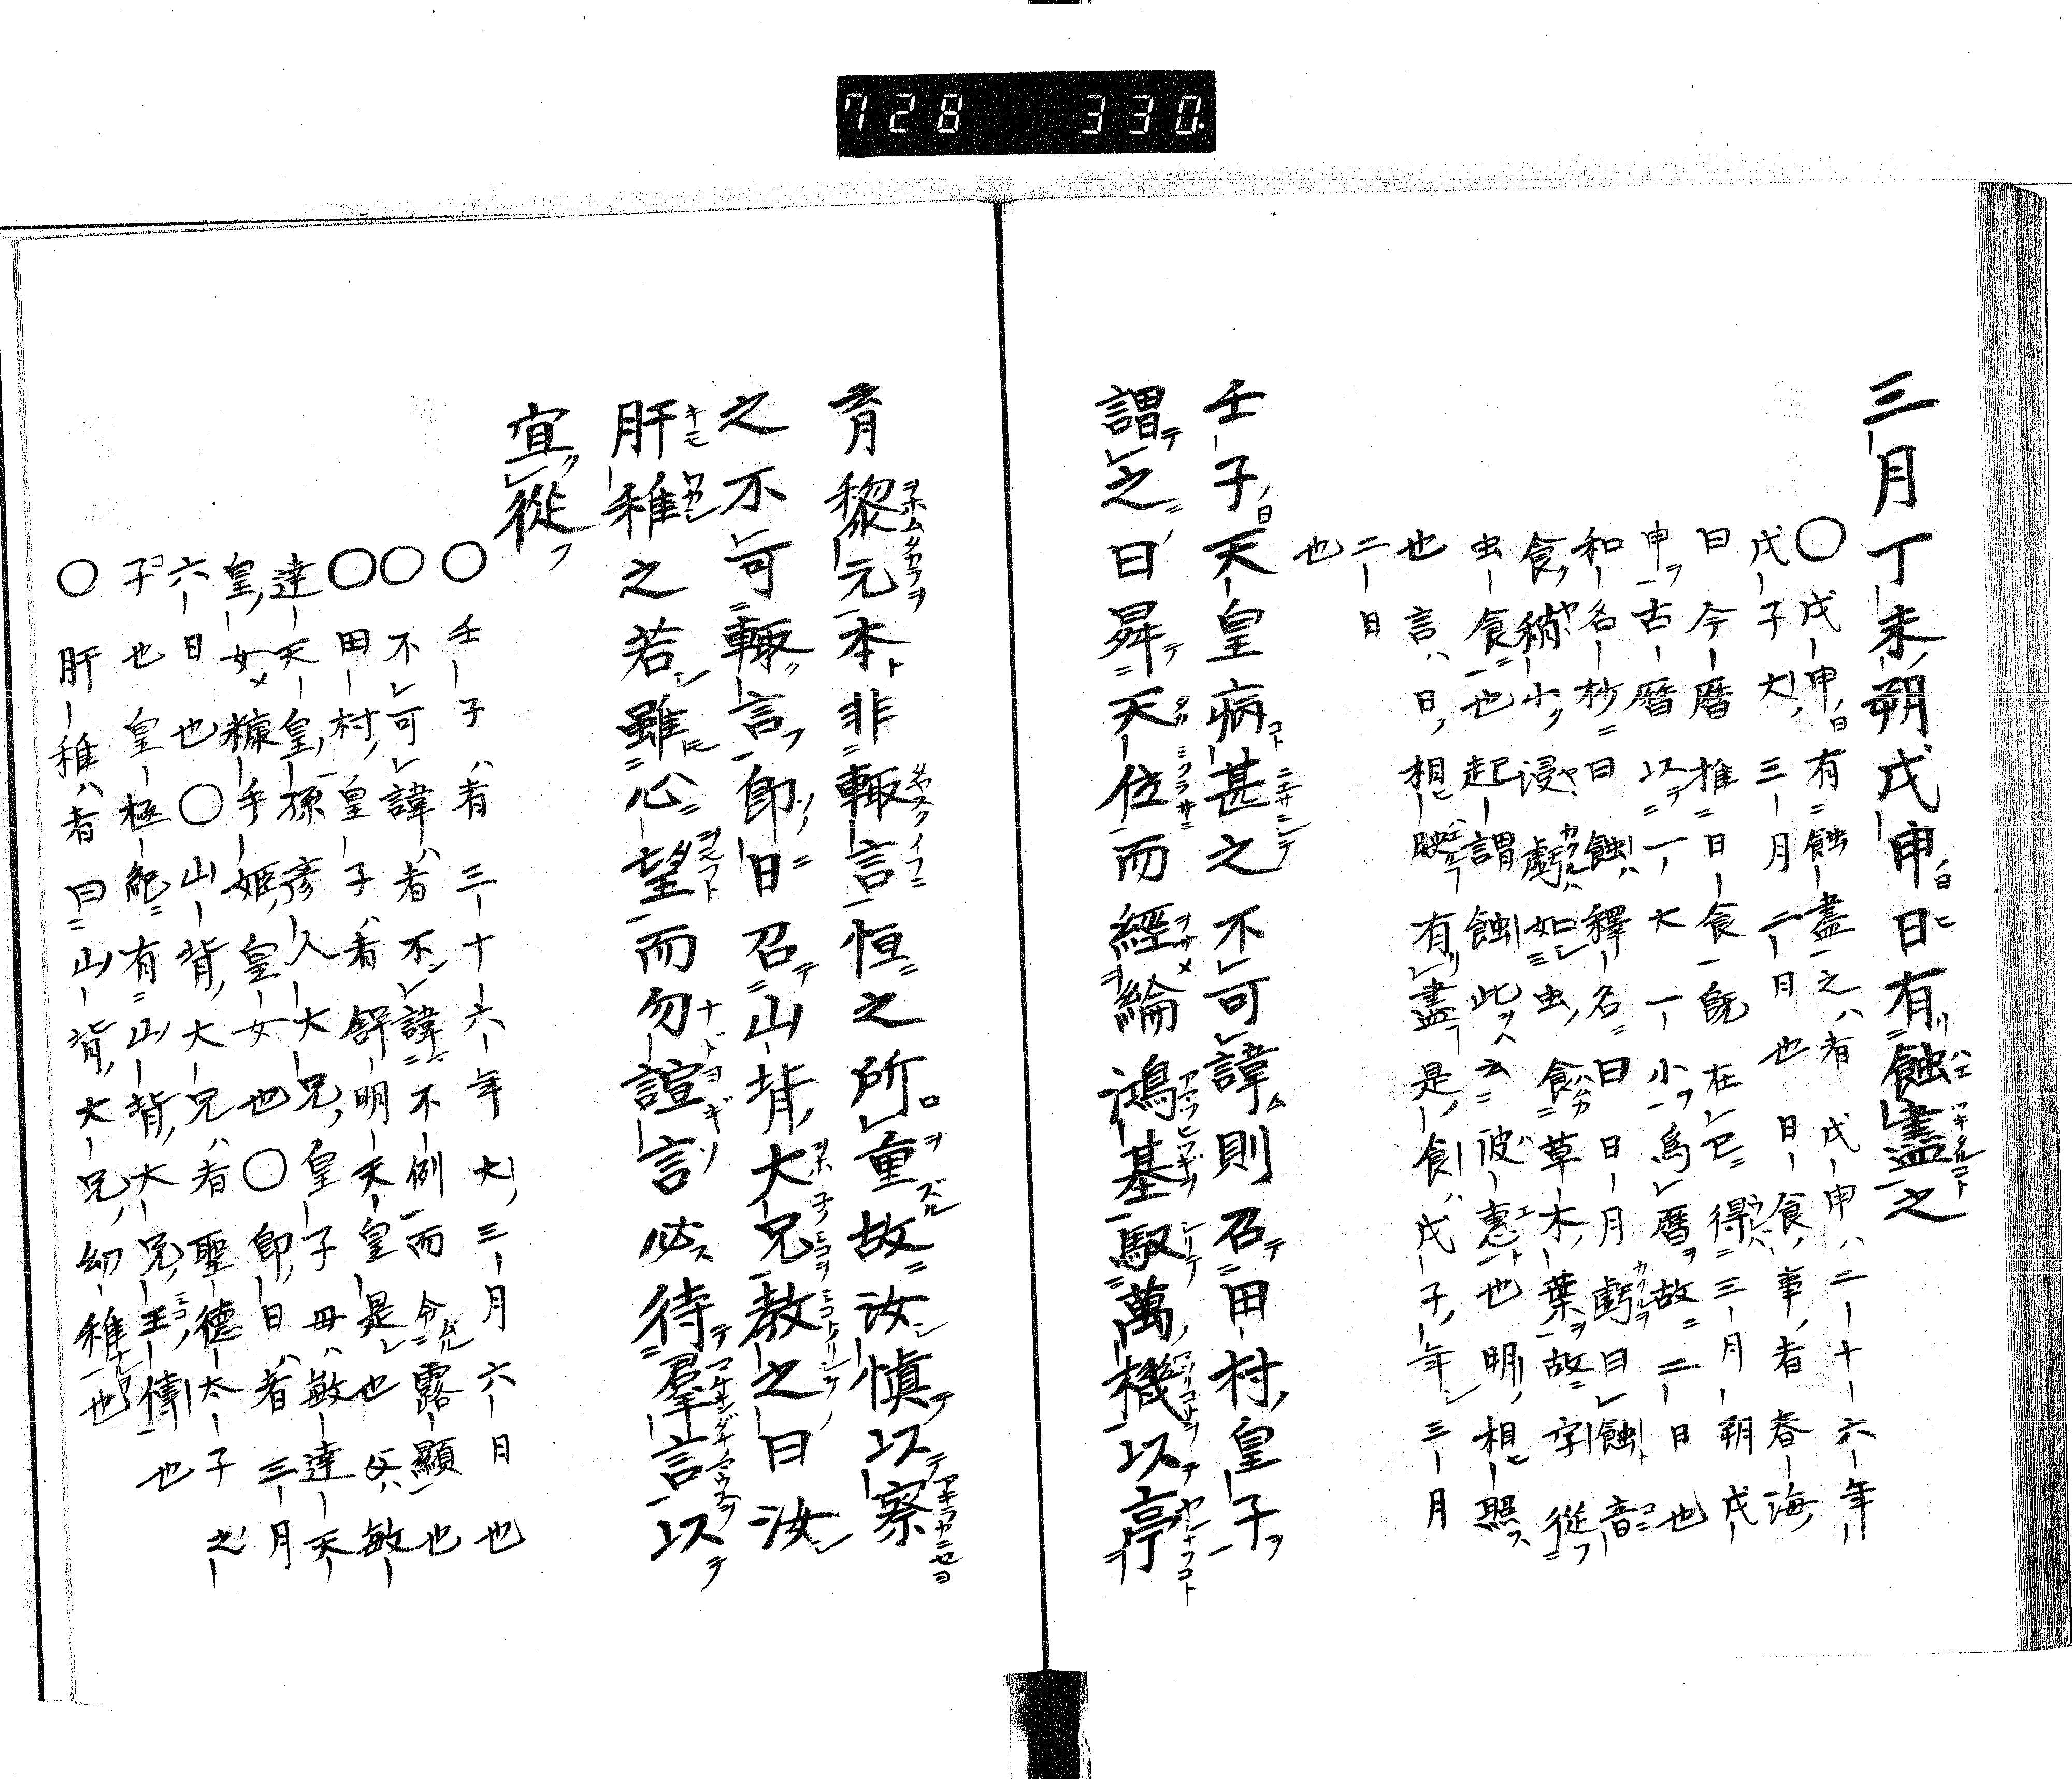 728 330
三月丁未朔戊申日有蝕盡之
〇戊申日有蝕盡之者 戊申ハ二十六年
戊子大三月二月也 日食事者春海
曰今曆推日食既在巳得三月朔戊
申古曆以一大一小爲曆故二日也
和名抄曰蝕釋名曰日月虧曰蝕音
食稍小浸虧如虫食草木葉故字從
虫食也起謂蝕此云彼惠也明相照
也言ハ日相映有盡是食ハ戊子年三月
二日
也
壬子天皇病甚之不可諱則召田村皇子
謂之曰昇天位而經綸鴻基馭萬機以亭
育黎元本非輙言恒之所重故汝愼以察
之不可輙言卽日召山背大兄教之曰汝
肝稚之若雖心望而勿諠言必待羣言以
宜從
〇壬子ハ者三十六年大三月六日也
〇不可諱ハ者不諱不例而令露顯也
〇田村皇子ハ者舒明天皇是也父ハ敏
達天皇孫彥人大兄皇子毋ハ敏達天
皇女糠手姬皇女也〇卽日ハ者三月
六日也〇山背大兄ハ者聖德太子之
子也皇極紀有山背大兄王傳也
〇肝稚ハ者曰山背大兄幼稚也